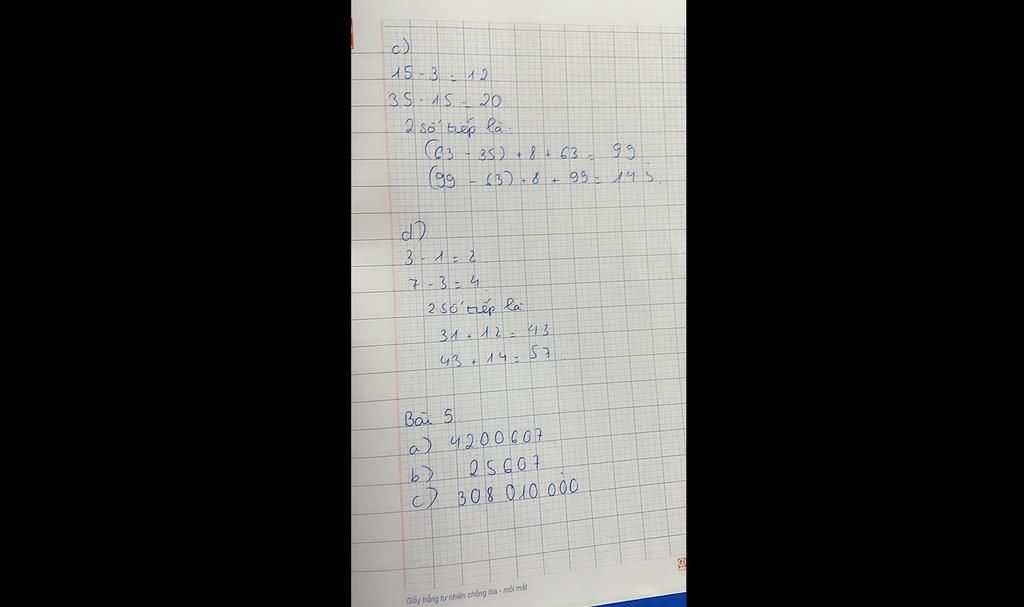 c)
15 - 3 = 12
35 - 15 = 20
2 số tiếp là:
(63 - 35) + 8 + 63 = 99
(99 - 63) + 8 + 99 = 143.
d)
3 - 1 = 2.
7 - 3 = 4.
2 số tiếp là
31 + 12 = 43
43 + 14 = 57.
Bài 5.
a) 4200607
b) 25607
c) 308 010 000
Giấy trắng tự nhiên chống lóa - mỏi mắt